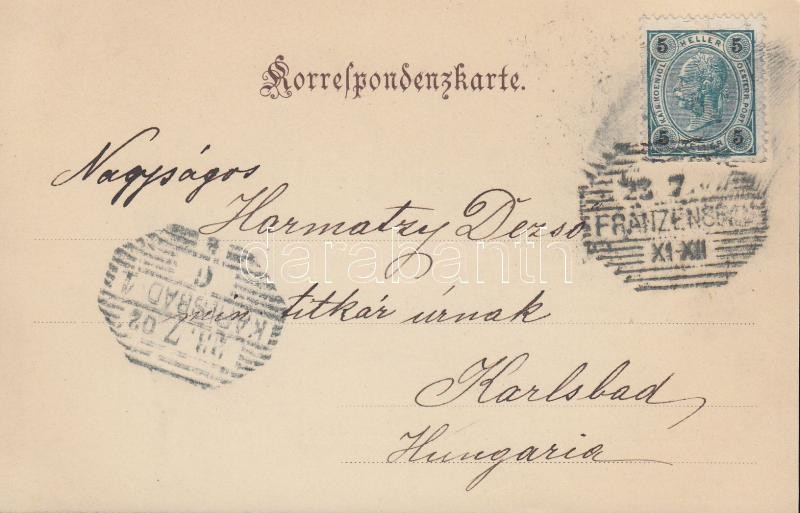 Korrespondenzkarte.
5 HELLER 5
KAIS. KOENIGL. OESTERR. POST
5 5
Nagyságos
Harmatzy Dezso
min titkár úrnak
Karlsbad
Hungaria
23 7
FRANZENSB
XI-XII
KARLSBAD 1
7 02
darabanth